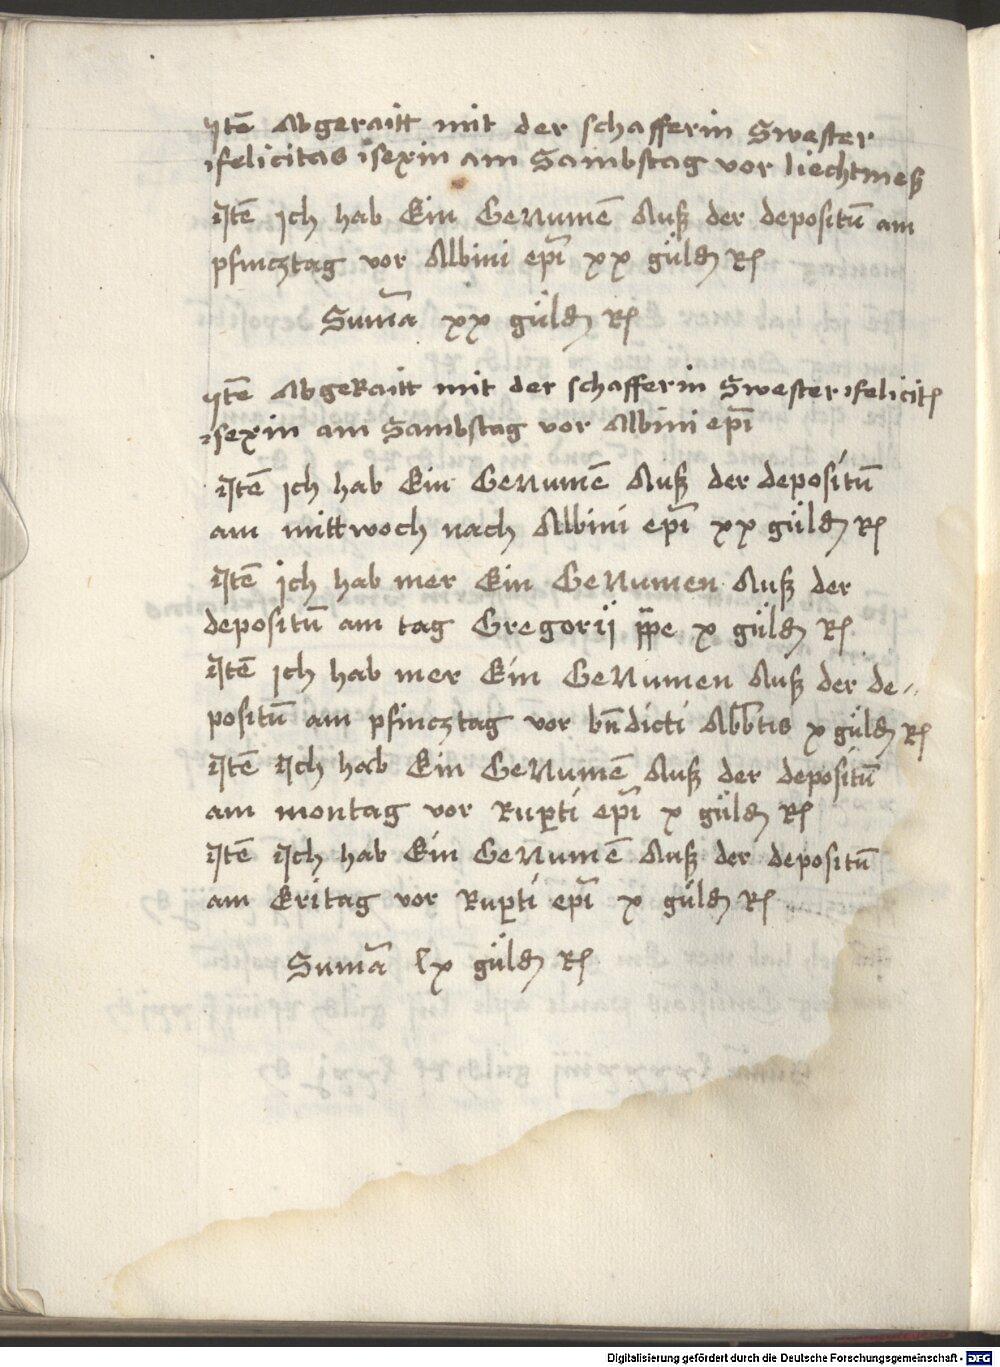 Jtē Abgeraitt mit der schafferin Swester
felicitas isexin am Sambstag vor liechtmeß
Jtē ich hab Ein Genumē Auß der depositū am
pfincztag vor Albini ep̄i xx guͤldꝫ Rꝭ
Sum̄a xx guͤldꝫ Rꝭ
Jtē AbgeRaitt mit der schafferin Swester felicitꝭ
isexin am Sambstag vor Albini ep̄i
Jtē ich hab Ein Genumē Auß der depositū
am mittwoch nach Albini ep̄i xx guͤldꝫ Rꝭ
Jtē ich hab mer Ein Genumen Auß der
depositū am tag Gregorij p̄pe x guͤldꝫ Rꝭ
Jtē ich hab mer Ein Genumen Auß der de⸗
positū am pfincztag vor bn̄dicti Abb̄tis x guͤldꝫ Rꝭ
Jtē Jch hab Ein Genumē Auß der depositū
am montag vor Ruꝑti ep̄i x guͤldꝫ Rꝭ
Jtē Jch hab Ein Genumē Auß der depositū
am Eritag vor Ruꝑti ep̄i x guͤldꝫ Rꝭ
Sum̄a lx guͤldꝫ Rꝭ
Digitalisierung gefördert durch die Deutsche Forschungsgemeinschaft - DFG